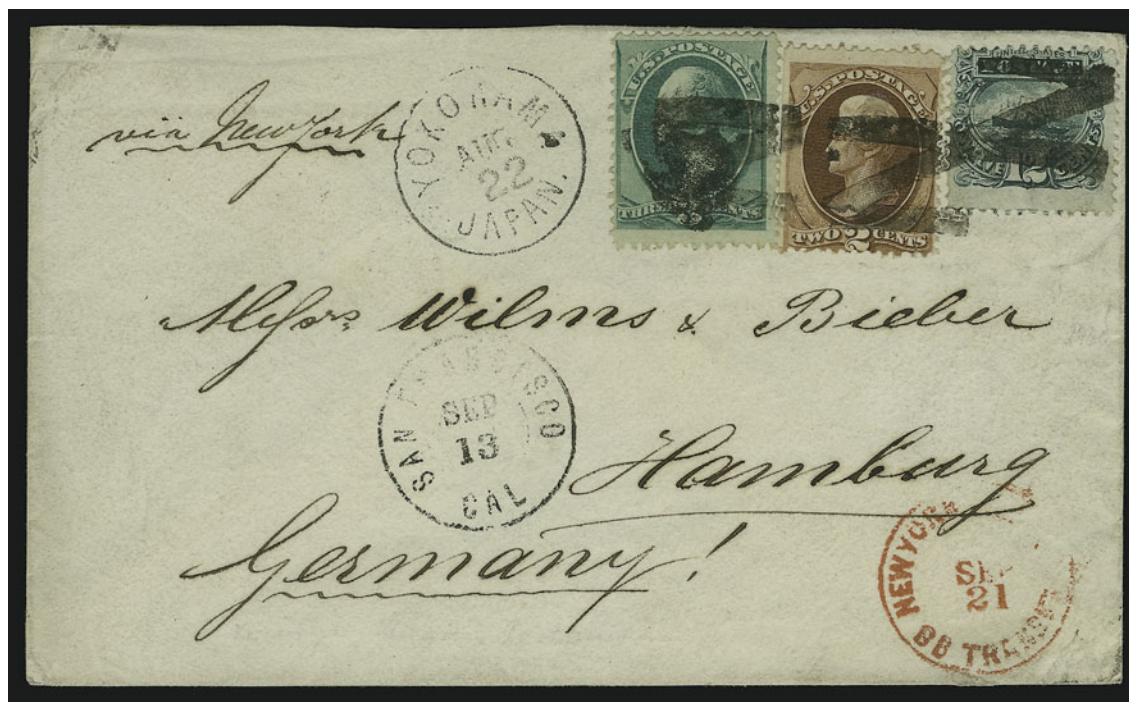 via New York
YOKOHAMA
AUG
22
JAPAN.
U.S. POSTAGE
THREE CENTS
3
U.S. POSTAGE
TWO 2 CENTS
UNITED STATES
POSTAGE
TWELVE 12 CENTS
Messrs Wilms & Bieber
SAN FRANCISCO
SEP
13
CAL
Hamburg
Germany!
NEW YORK
SEP
21
BR TRANSIT